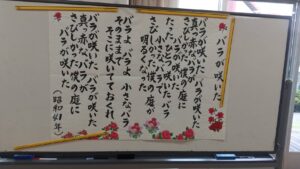 バラが咲いた
バラが咲いた バラが咲いた
真っ赤なバラが
さびしかった僕の庭に
バラが咲いた
たったひとつ咲いたバラ
小さなバラで
さびしかった僕の庭が
明るくなった
バラよ バラよ 小さなバラ
そのままで
そこに咲いてておくれ
バラが咲いた バラが咲いた
真っ赤なバラが
さびしかった僕の庭に
バラが咲いた
(昭和41年)